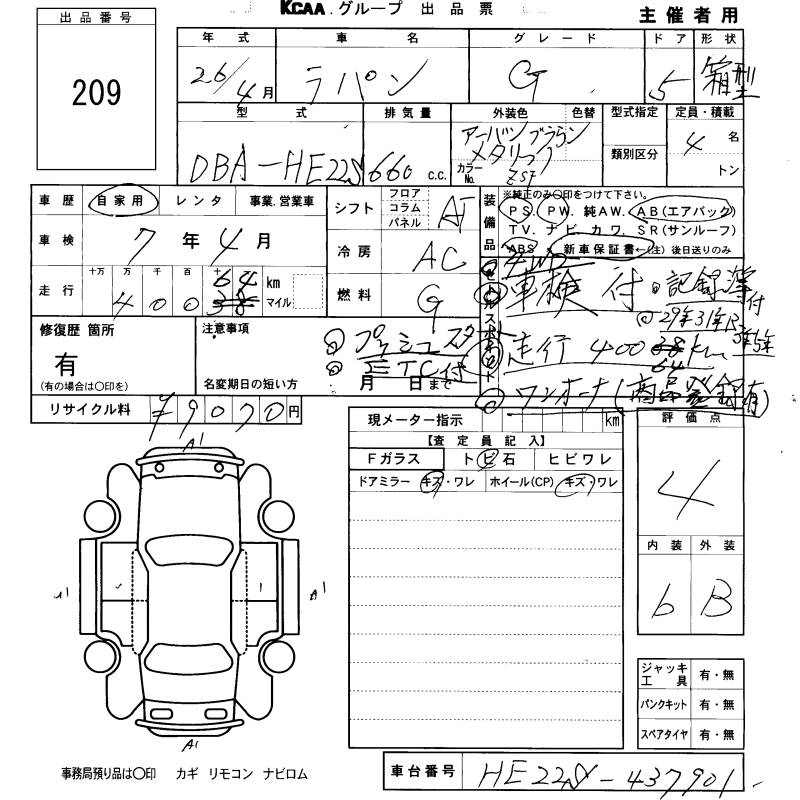 KCAA.グループ 出品票
主催者用
出品番号
209
年式 車名 グレード ドア 形状
26/4月 ラパン G 5 箱型
型式 排気量 外装色 色替 型式指定 定員・積載
DBA-HE22S 660 c.c. アーバンブラウン
メタリック
カラーNo. ZSF
類別区分
4名
トン
車歴 自家用 レンタ 事業.営業車
車検 7年4月
十万 万 千 百 十
走行 4 0 0 38 64 km
マイル
シフト フロア コラム パネル AT
冷房 AC
燃料 G
装備品
※純正のみ○印をつけて下さい。
PS. PW. 純AW. AB(エアバック)
TV. ナビ. カワ. SR(サンルーフ)
ABS 新車保証書←(注)後日送りのみ
4WD
車検付 記録簿付
29年31年R3年5年
走行 40038km
64
ワンオーナー
修復歴 箇所
有
(有の場合は○印を)
注意事項
プッシュスタート
ETC付
名変期日の短い方 月 日まで
リサイクル料 ¥9070円
現メーター指示 km
【査定員記入】
Fガラス トビ石 ヒビワレ
ドアミラー キズ・ワレ ホイール(CP) キズ・ワレ
評価点
4
内装 外装
6 B
A1
A1
A1
A1
ジャッキ工具 有・無
パンクキット 有・無
スペアタイヤ 有・無
事務局預り品は○印 カギ リモコン ナビロム
車台番号 HE22S-437901